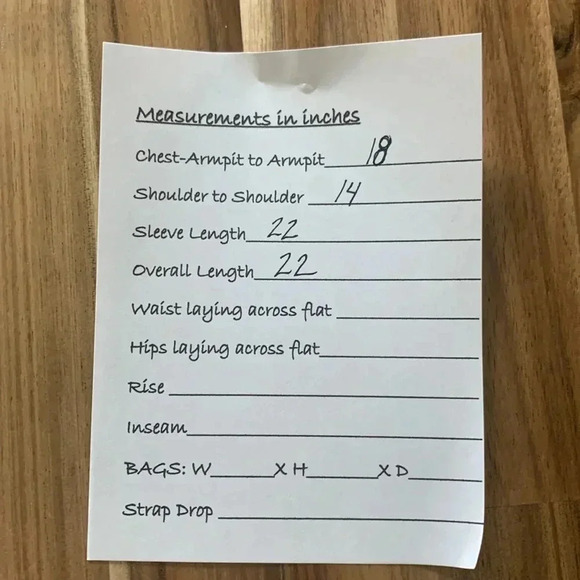 Measurements in inches
Chest-Armpit to Armpit 18
Shoulder to Shoulder 14
Sleeve Length 22
Overall Length 22
Waist laying across flat
Hips laying across flat
Rise
Inseam
BAGS: W______X H______X D______
Strap Drop